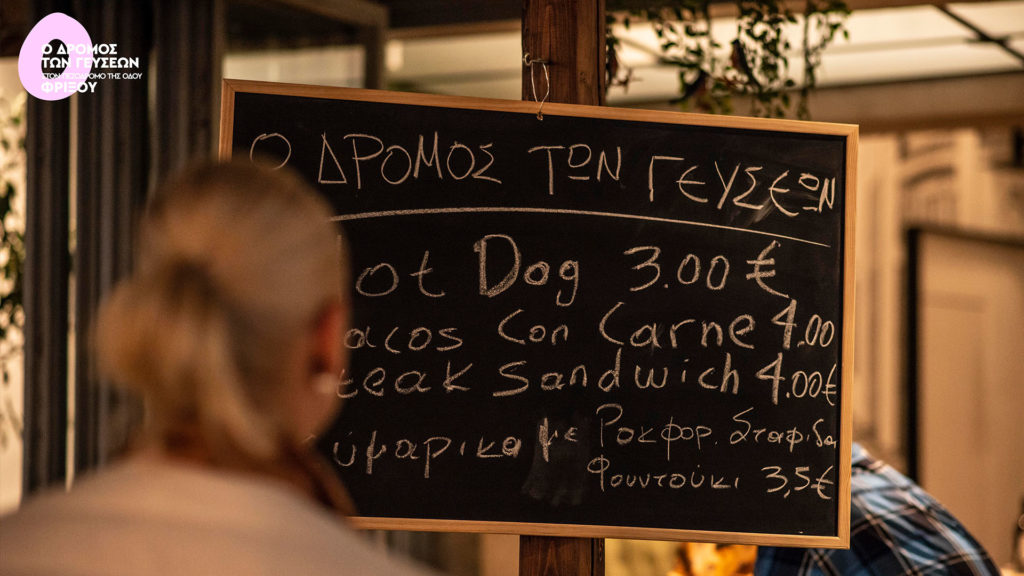 Ο ΔΡΟΜΟΣ
ΤΩΝ ΓΕΥΣΕΩΝ
ΣΤΟΝ ΠΕΖΟΔΡΟΜΟ ΤΗΣ ΟΔΟΥ
ΦΡΙΞΟΥ
Ο ΔΡΟΜΟΣ ΤΩΝ ΓΕΥΣΕΩΝ
ot Dog 3.00 €
acos Con Carne 4.00
teak Sandwich 4.00€
ύμαρικα με Ροκφορ. Σταφιδα
Φουντούκι 3,5€